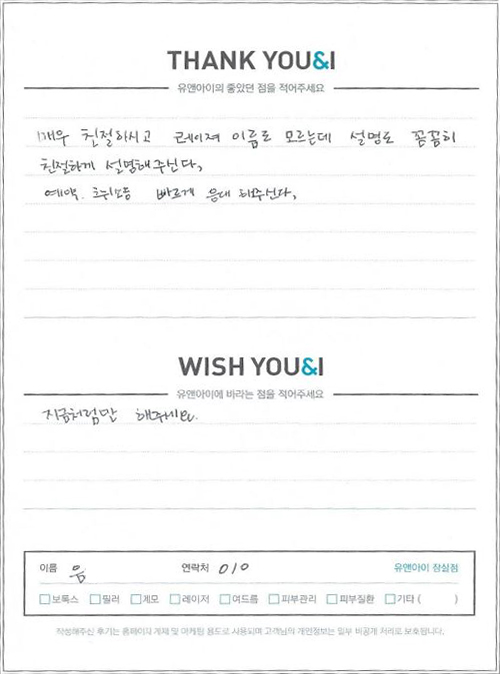 THANK YOU&I
유앤아이의 좋았던 점을 적어주세요
매우 친절하시고 레이져 이름도 모르는데 설명도 꼼꼼히
친절하게 설명해주신다,
예약. 빠르게 응대 해주신다,
WISH YOU&I
유앤아이에 바라는 점을 적어주세요
지금처럼만 해주세요.
이름 음 연락처 010 유앤아이 잠실점
보톡스 필러 제모 레이저 여드름 피부관리 피부질환 기타 ( )
작성해주신 후기는 홈페이지 게재 및 마케팅 용도로 사용되며 고객님의 개인정보는 일부 비공개 처리로 보호됩니다.